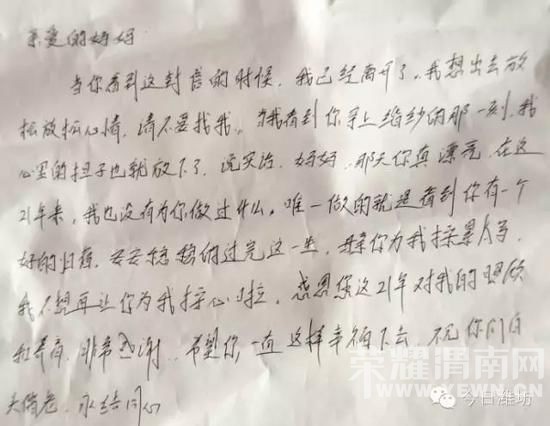 亲爱的妈妈
当你看到这封信的时候，我已经离开了，我想出去放
松放松心情，请不要找我。当我看到你穿上婚纱的那一刻，我
心里的担子也就放下了，说实话，妈妈，那天你真漂亮，在这
21年来，我也没有为你做过什么，唯一做的就是看到你有一个
好的归宿，安安稳稳的过完这一生，你为我操累
我不想再让你为我操心啦，感恩您这21年对我的照顾
和养育，非常感谢，希望你一直这样幸福下去，祝你们白
头偕老，永结同心
荣耀渭南网
YEWN.CN
今日潍坊